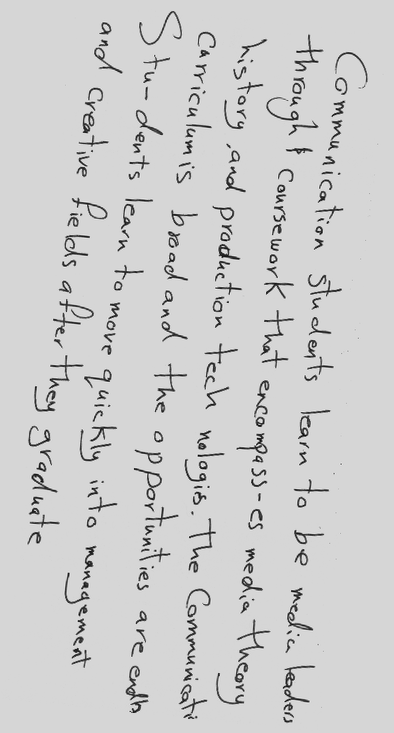 Communication students learn to be media leaders
through coursework that encompass-es media theory
history, and production tech nologis. The Communicati
curriculumis broad and the opportunities are endls
Stu-dents learn to move quickly into management
and creative fields after they graduate